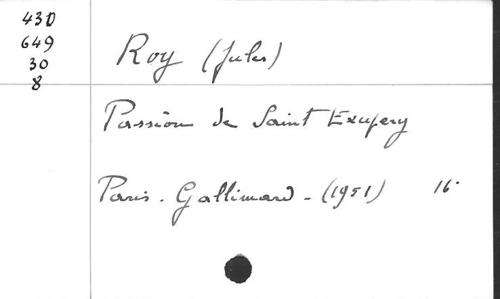 430
649
30
8
Roy (Jules)
Passion de Saint Exupery
Paris. Gallimard - (1951) 16.